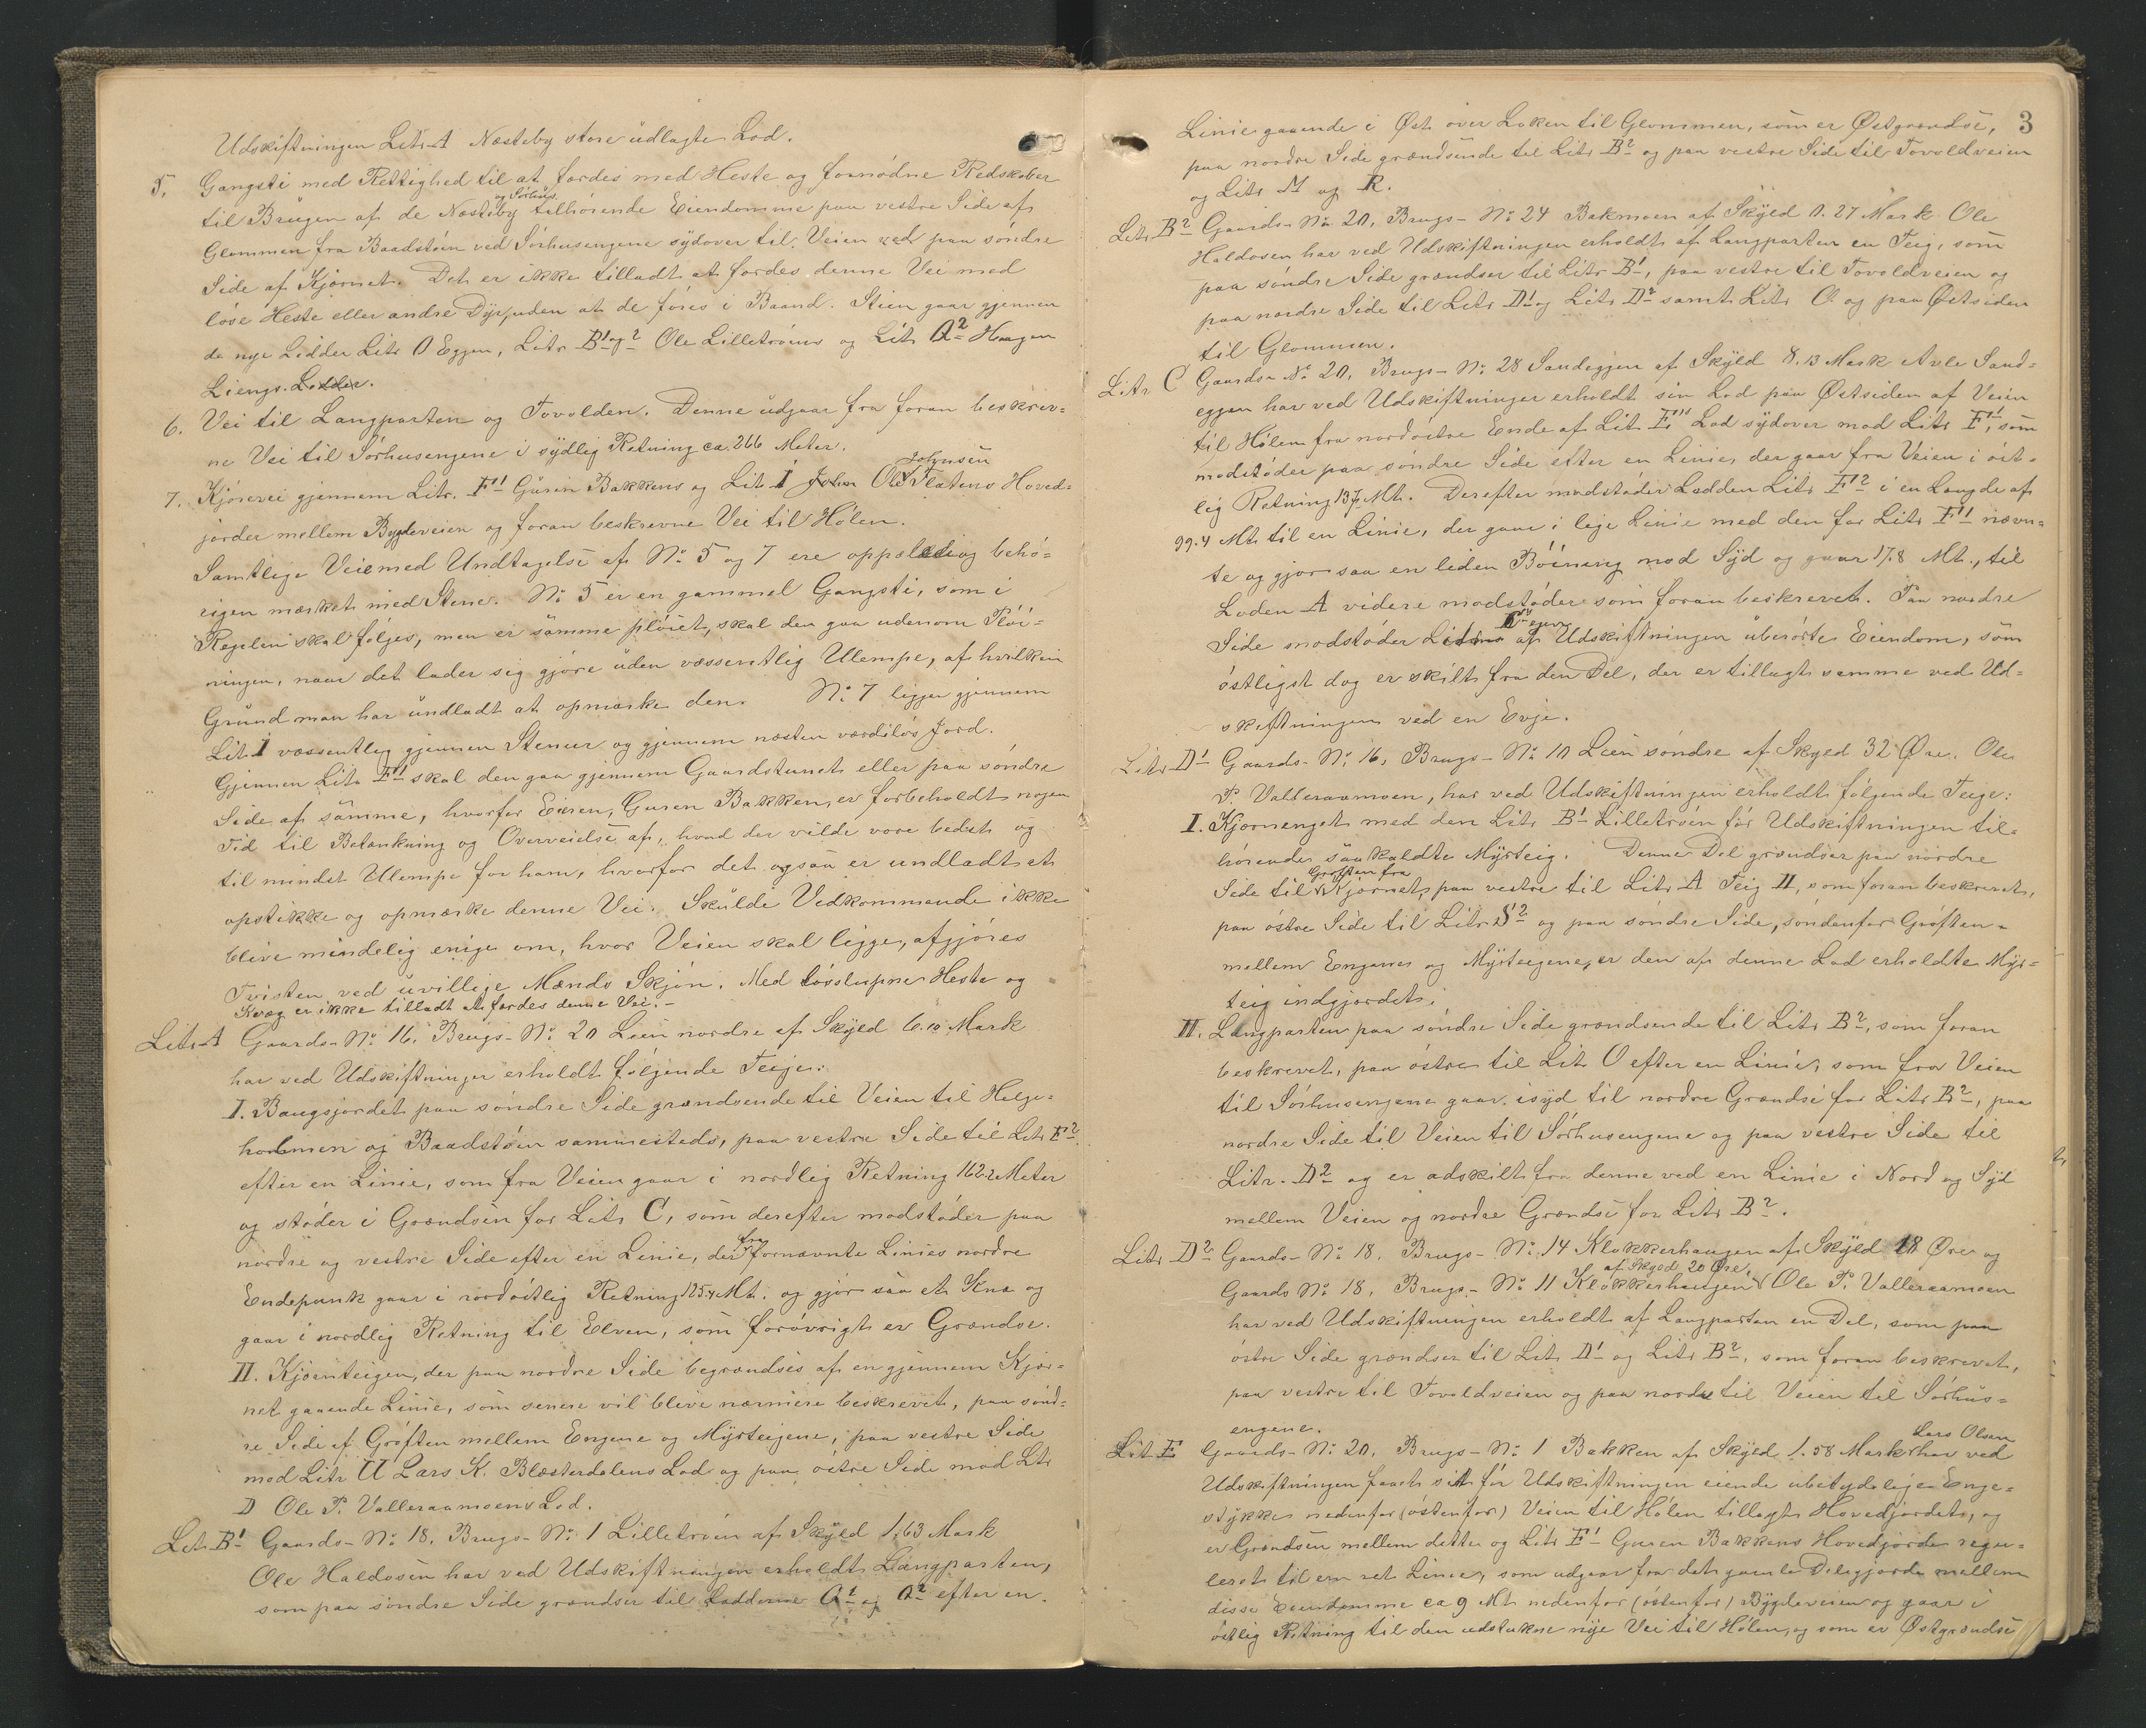 Udskiftningen Litr A Næsteby store udlagte Lod.
5. Gangsti med Rettighed til at færdes med Heste og fornødne Redskaber
og Sørhus
til Brugen af de Næsteby tilhørende Eiendomme paa vestre Side af
Glommen fra Baadstøen ved Sørhusengene sydover til Veien ved paa søndre
Side af Kjørnet. Det er ikke tilladt at færdes denne Vei med
løse Heste eller andre Dyr, uden at de føres i Baand. Stien gaar gjennem
de nye Lidder Litr O Eggen, Litr B1 og 2 Ole Lilletrøens og Litr Q2 Haagen
Liengs Lodder.
6. Vei til Langparten og Tovolden. Denne udgaar fra foran beskrev-
ne Vei til Sørhusengene i sydlig Retning ca 266 Meter.
Johnsen
7. Kjørevei gjennem Litr. F1 Guren Bakkens og Lit I John Ole Flatens Hoved-
jorder mellem Bygdeveien og foran beskrevne Vei til Hølen.
Samtlige Veie med Undtagelse af No 5 og 7 ere oppælede og behø-
rigen mærket med Stene. No 5 er en gammel Gangsti, som i
Regelen skal følges, men er samme pløiet, skal den gaa udenom Pløi-
ningen, naar det lader sig gjøre uden væssentlig Ulempe, af hvilken
Grund man har undladt at opmærke den. No 7 ligger gjennem
Lit. I væssentlig gjennem Stenur og gjennem næsten værdiløs Jord.
Gjennem Litr F1 skal den gaa gjennem Gaardstunet eller paa søndre
Side af samme, hvorfor Eieren, Guren Bakken, er forbeholdt nogen
Tid til Betænkning og Overveielse af, hvad der vilde være bedst og
til mindst Ulempe for ham, hvorfor det ogsaa er undladt at
opstikke og opmærke denne Vei. Skulde Vedkommende ikke
blive mindelig enige om, hvor Veien skal ligge, afgjøres
Tvisten ved uvillige Mænds Skjøn. Med løsslupne Heste og
Kvæg er ikke tilladt at færdes denne Vei.-
Litr A Gaards-No 16. Brugs-No 20 Lien nordre af Skyld 6.10 Mark
har ved Udskiftningen erholdt følgende Teige:
I. Baugsjordet paa søndre Side grændsende til Veien til Helge-
holmen og Baadstøen sammesteds, paa vestre Side til Litr F2
efter en Linie, som fra Veien gaar i nordlig Retning 162.2 Meter
og støder i Grændsen for Litr C, som derefter modstøder paa
nordre og vestre Side efter en Linie, der fra fornævnte Linies nordre
Endepunk gaar i nordøstlig Retning 125.4 Mt. og gjør saa et Knæ og
gaar i nordlig Retning til Elven, som forøvrigt er Grændse.
II. Kjørnteigen, der paa nordre Side begrændses af en gjennem Kjør-
net gaaende Linie, som senere vil blive nærmere beskrevet, paa sønd-
re Side af Grøften mellem Engene og Myrteigene, paa vestre Side
mod Litr U Lars K. Blæsterdalens Lod og paa østre Side mod Litr
D Ole P. Valleraamoens Lod.
Litr B1 Gaards-No 18. Brugs-No 1 Lilletrøen af Skyld 1.63 Mark
Ole Haldosen har ved Udskiftningen erholdt Langparten,
som paa søndre Side grændser til Lodderne Q2 og Q2 efter en
3
Linie gaaende i Øst over Loken til Glommen, som er Østgrændse,
paa nordre Side grændsende til Litr B2 og paa vestre Side til Tovoldveien
og Litr M og R.
Litr B2 Gaards-No 20, Brugs-No 24 Bakmoen af Skyld 0.27 Mark Ole
Haldosen har ved Udskiftningen erholdt af Langparten en Teig, som
paa søndre Side grændser til Litr B1, paa vestre til Tovoldveien og
paa nordre Side til Litr D1 og Litr D2 samt Litr O og paa Østsiden
til Glommen.
Litr C Gaards-No 20, Brugs-No 28 Sandeggen af Skyld 8.13 Mark Avle Sand-
eggen har ved Udskiftningen erholdt sin Lod paa Østsiden af Veien
til Hølen fra nordøstre Ende af Lit F1 Lod sydover mod Litr F1, som
modstøder paa søndre Side efter en Linie, der gaar fra Veien i øst-
lig Retning 137 Mt. Derefter modstøder Lodden Litr F2 i en Længde af
99.4 Mt til en Linie, der gaar i lige Linie med den for Litr F1 nævn-
te og gjør saa en liden Bøining mod Syd og gaar 17.8 Mt., til
Loden A videre modstøder som foran beskrevet. Paa nordre
Side modstøder af Udskiftningen uberørte Eiendom, som
østligst dog er skilt fra den Del, der er tillagt samme ved Ud-
skiftningen ved en Evje.
Litr D1 Gaards-No 16, Brugs-No 10 Lien søndre af Skyld 32 Øre. Ole
P. Valleraamoen, har ved Udskiftningen erholdt følgende Teige:
I. Kjørnenget med den Litr B1 Lilletrøen før Udskiftningen til-
hørende saakaldte Myrteig. Denne Del grændser paa nordre
Grøften fra
Side til Kjørnet, paa vestre til Litr A Teig II, som foran beskrevet,
paa østre Side til Litr S2 og paa søndre Side, søndenfor Grøften
mellem Engene og Myrteigene, er den af denne Lod erholdte Myr-
teig indgjordet.
II. Langparten paa søndre Side grændsende til Litr B2, som foran
beskrevet, paa østre til Lit O efter en Linie, som fra Veien
til Sørhusengene gaar i syd til nordre Grændse for Litr B2, paa
nordre Side til Veien til Sørhusengene og paa vestre Side til
Litr. D2 og er adskilt fra denne ved en Linie i Nord og Syd
mellem Veien og nordre Grændse for Litr B2.
Litr D2 Gaards-No 18. Brugs-No 14 Klokkerhaugen af Skyld 18 Øre og
af Skyld 20 Øre,
Gaards No 18, Brugs-No 11 Klokkerhaugen Ole P. Valleraamoen
har ved Udskiftningen erholdt af Langparten en Del, som paa
østre Side grændser til Litr D1 og Litr B2, som foran beskrevet,
paa vestre til Tovoldveien og paa nordre til Veien til Sørhus-
engene.
Lars Olsen
Lit E Gaards-No 20, Brugs-No 1 Bakken af Skyld 1.58 Mark har ved
Udskiftningen faaet sit før Udskiftningen eiende ubetydelige Enge-
stykke nedenfor (østenfor) Veien til Hølen tillagt Hovedjordet, og
er Grændsen mellem dette og Litr F1 Guren Bakkens Hovedjorde regu-
leret til en ret Linie, som udgaar fra det gamle Delegjærde mellem
disse Eiendomme ca 9 Mt nedenfor (østenfor) Bygdeveien og gaar i
østlig Retning til den udstukne nye Vei til Hølen, og som er Østgrændse